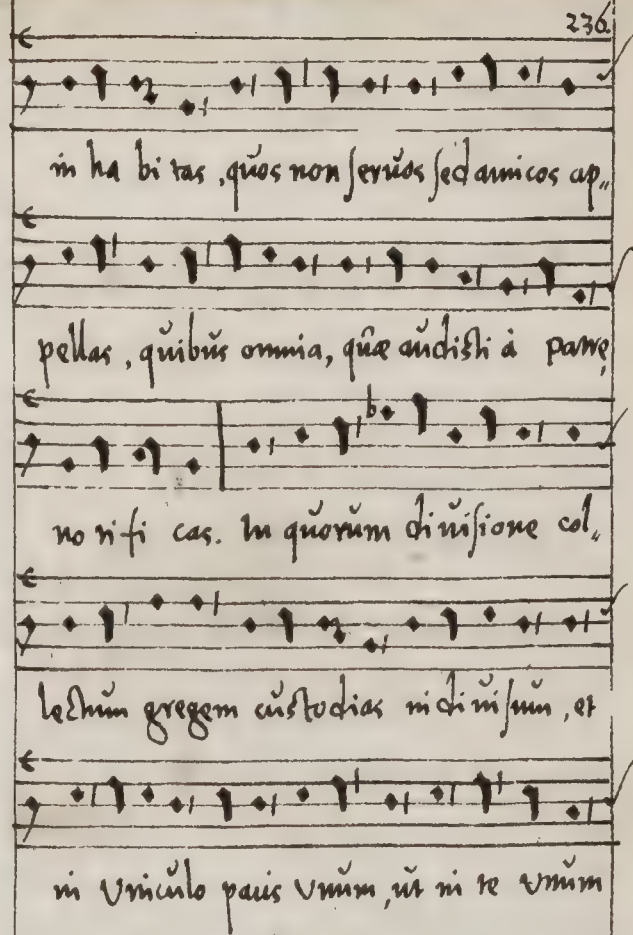 236.
in ha bi tas, quos non servos sed amicos ap„
pellas, quibus omnia, quæ audisti à patre
no ri fi cas. In quorum divisione col„
lectum gregem custodias indivisum, et
in vniculo pacis vnum, ut in te vnum